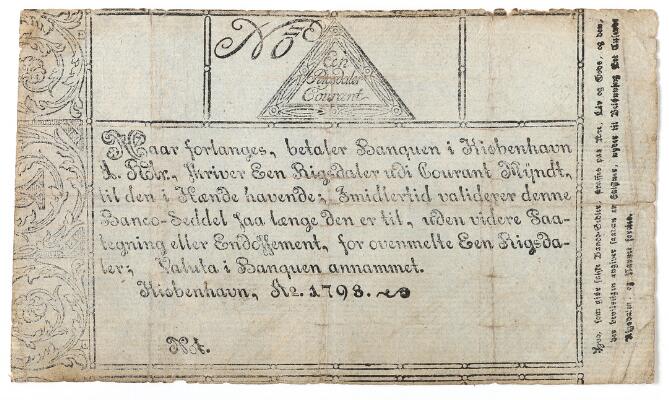 No
Een
Rigsdaler
Courant
Naar forlanges, betaler Banquen i Kiøbenhavn
1. Rdr., skriver Een Rigsdaler udi Courant Mÿndt,
til den i Hænde havende; Imidlertid validerer denne
Banco-Seddel saa længe den er til, uden videre Paa-
tegning eller Endossement, for ovenmelte Een Rigsda-
ler; Valuta i Banquen annammet.
Kiøbenhavn, Ao. 1798.
Not.
Hvo, som giør falske Banco-Sedler, straffes paa Ære, Liv og Gods, og den,
der beviisligen angiver saadan en Falskner, nyder til Belønning Eet Tusinde
Rigsdaler, og Navnet forties.